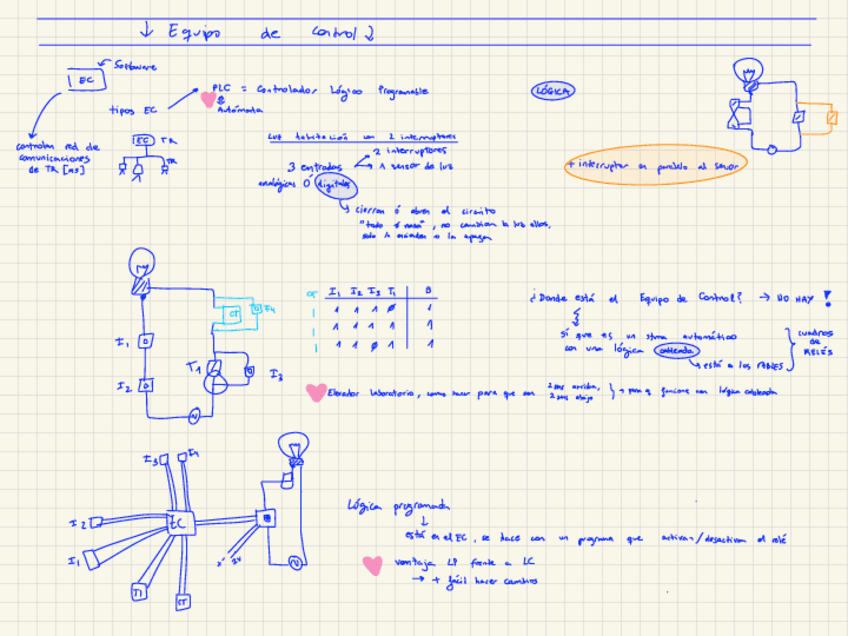 ↓ Equipo de Control
Software
EC
tipos EC
PLC = Controlador Lógico Programable
Autómata
LÓGICA
controlan red de
comunicaciones
de TR [ms]
EC TR
TR
Luz habitación con 2 interruptores
3 entradas
2 interruptores
1 sensor de luz
analógicas ó digitales
cierran ó abren el circuito
"todo ó nada", no cambian la luz ellos,
solo la encienden o la apagan
+ interruptor en paralelo al sensor
I1
I2
T1
I3
CT
I4
CT I1 I2 I3 T1 B
1 1 1 1 0 1
1 1 1 1 1 1
1 1 1 0 1 1
¿Donde está el Equipo de Control? → NO HAY !
sí que es un stma automático
con una lógica cableada
está a los RELÉS
cuadros
de
RELÉS
Elevador laboratorio, como hacer para que con
2 seg arriba,
2 seg abajo
→ para q funcione con lógica cableada
I3
I4
I2
I1
EC
T1
CT
Lógica programada
está en el EC, se hace con un programa que activan/desactivan el relé
ventaja LP frente a LC
→ + fácil hacer cambios